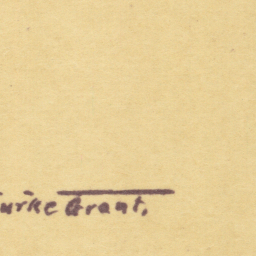 urke Grant.